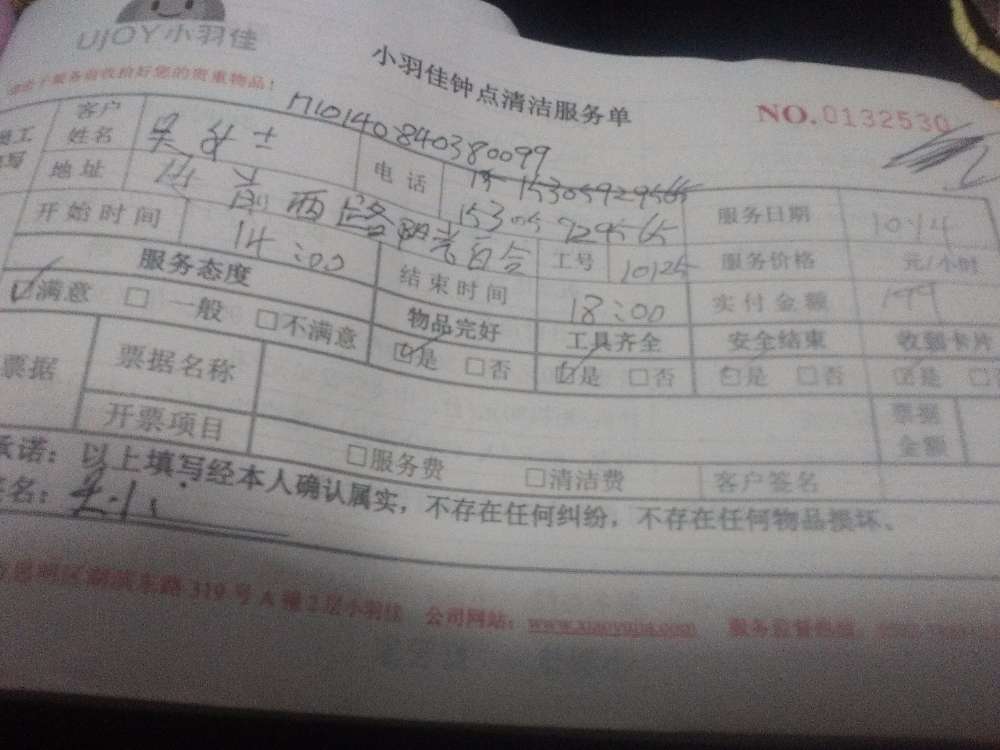 UJOY小羽佳
小羽佳钟点清洁服务单
NO.0132530
服务前收拾好您的贵重物品!
1710140840380099
客户姓名 吴女士
电话 15305929565
15305929565
服务日期 10.14
地址 湖滨西路阳光百合
工号 10125
服务价格 元/小时
开始时间 14:00
结束时间 18:00
实付金额 199
服务态度 物品完好 工具齐全 安全结束 收到卡片
满意 □ 一般 □不满意 是 □否 是 □否 是 □否 是
票据 票据名称 票据金额
开票项目 □服务费 □清洁费 客户签名
承诺:以上填写经本人确认属实,不存在任何纠纷,不存在任何物品损坏。
签名:
思明区湖滨东路319号A幢2层小羽佳 公司网站:www.xiaoyujia.com 服务监督热线: